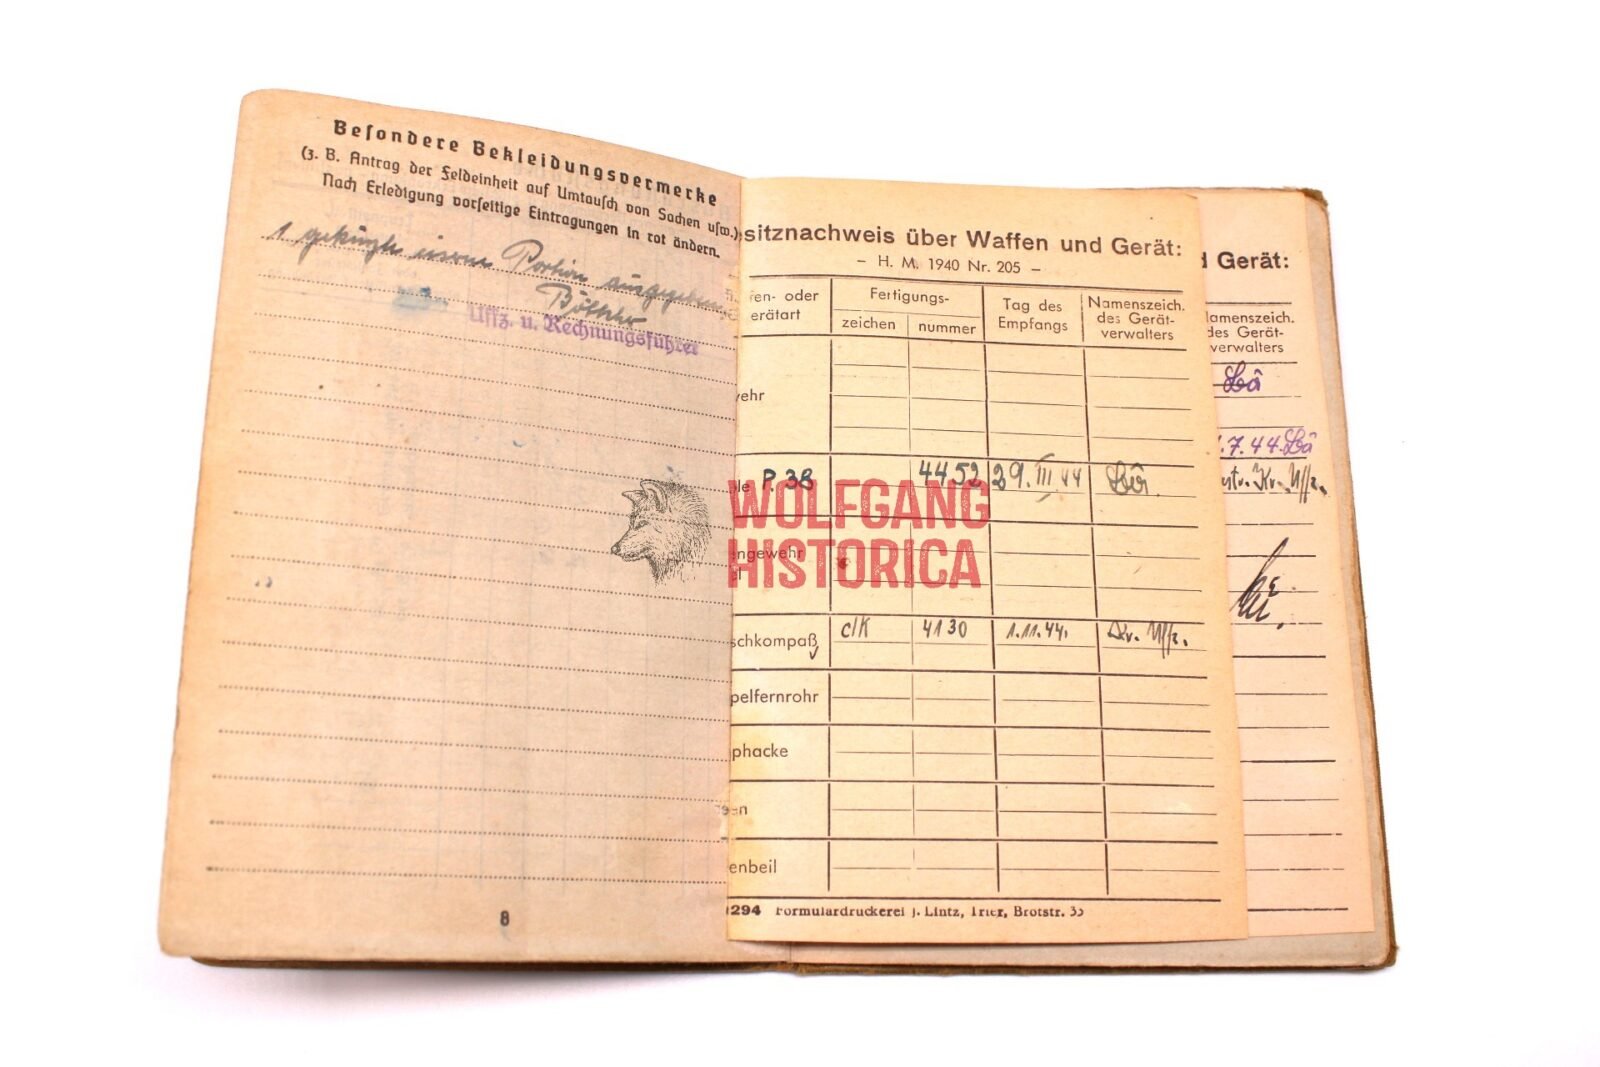 Besondere Bekleidungsvermerke
(z. B. Antrag der Feldeinheit auf Umtausch von Sachen usw.)
Nach Erledigung vorseitige Eintragungen in rot ändern.
1 gekürzte eiserne Portion ausgegeben
Uffz. u. Rechnungsführer
8
sitznachweis über Waffen und Gerät:
– H. M. 1940 Nr. 205 –
en- oder
erätart
Fertigungs-
zeichen
nummer
Tag des
Empfangs
Namenszeich.
des Gerät-
verwalters
ehr
le P. 38 4452 29. III 44
ngewehr
el
schkompaß clk 4130 1.11.44. Uffz.
pelfernrohr
phacke
en
enbeil
294 Formulardruckerei J. Lintz, Trier, Brotstr. 33
d Gerät:
Namenszeich.
des Gerät-
verwalters
.7.44.
Uffz.
WOLFGANG
HISTORICA